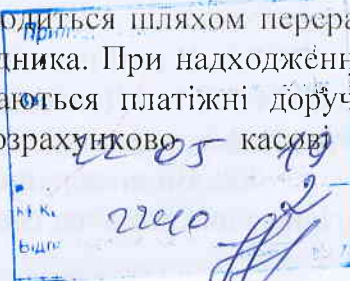 одиться шляхом перера
Прийн
дника. При надходженн
аються платіжні доруч
озрахунково касові
22 05 19
2
КЕКВ
2240
Відп